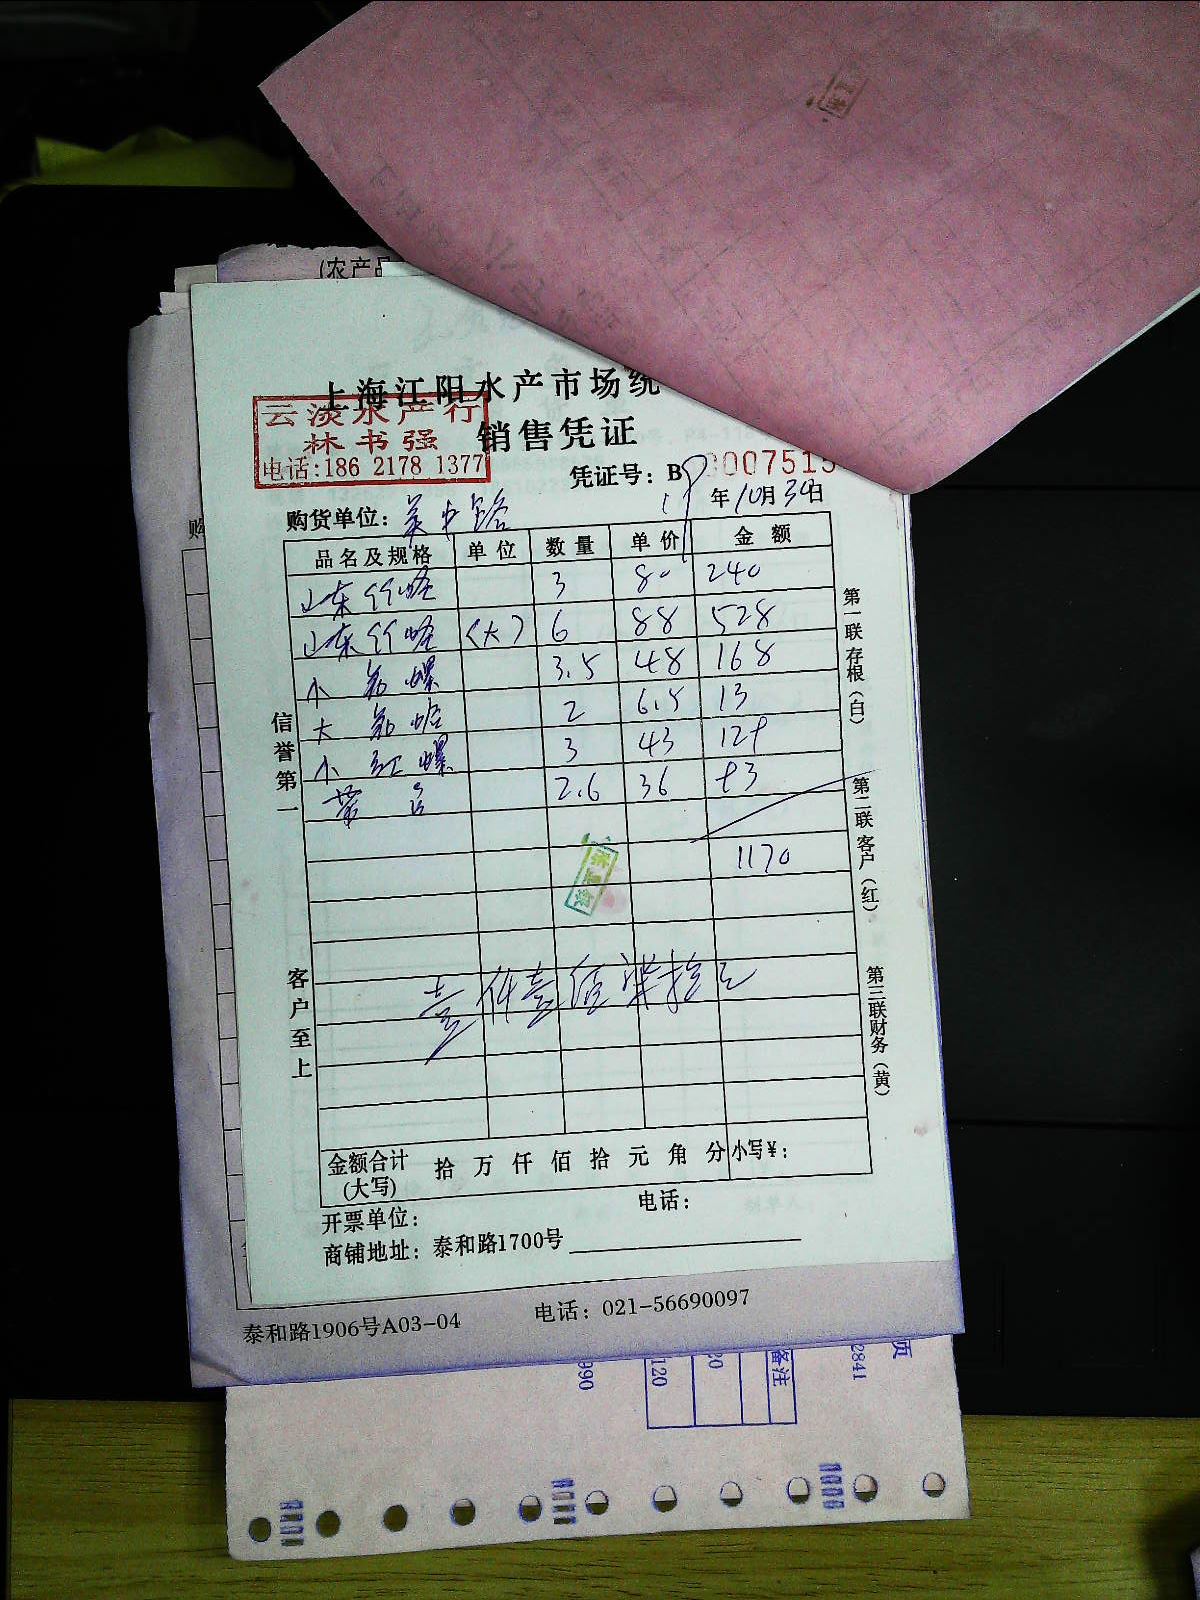 (农产品
上海江阳水产市场统
云淡水产行
林书强
电话:186 2178 1377
销售凭证
凭证号: B 000751
购货单位: 吴中路
年10月30日
品名及规格 单位 数量 单价 金额
山东竹蛏 3 80 240
山东竹蛏 (大) 6 88 528
小 螺 3.5 48 168
大 蛤 2 6.5 13
小 红 螺 3 43 129
2.6 36 93
1170
壹仟壹佰柒拾元
信誉第一
客户至上
第一联存根(白)
第二联客户(红)
第三联财务(黄)
金额合计 (大写) 拾 万 仟 佰 拾 元 角 分 小写¥:
开票单位: 电话:
商铺地址: 泰和路1700号
泰和路1906号A03-04 电话: 021-56690097
购
990
120
20
备注
2841
页